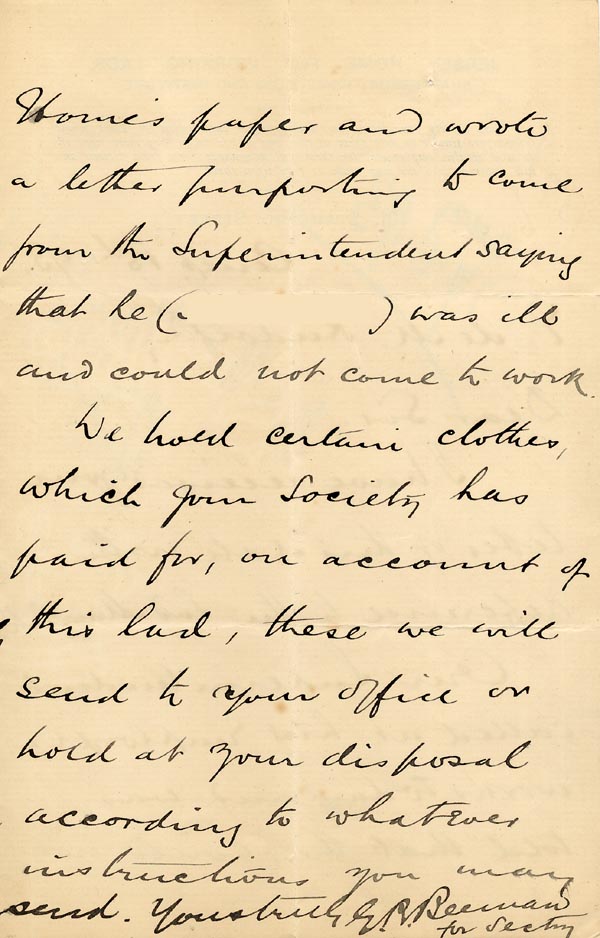 Home's paper and wrote
a letter purporting to come
from the Superintendent saying
that he ( ) was ill
and could not come to work.
We hold certain clothes,
which your Society has
paid for, on account of
this lad, these we will
send to your office or
hold at your disposal
according to whatever
instructions you may
send. Yours truly G. R. Beeman
for Secty